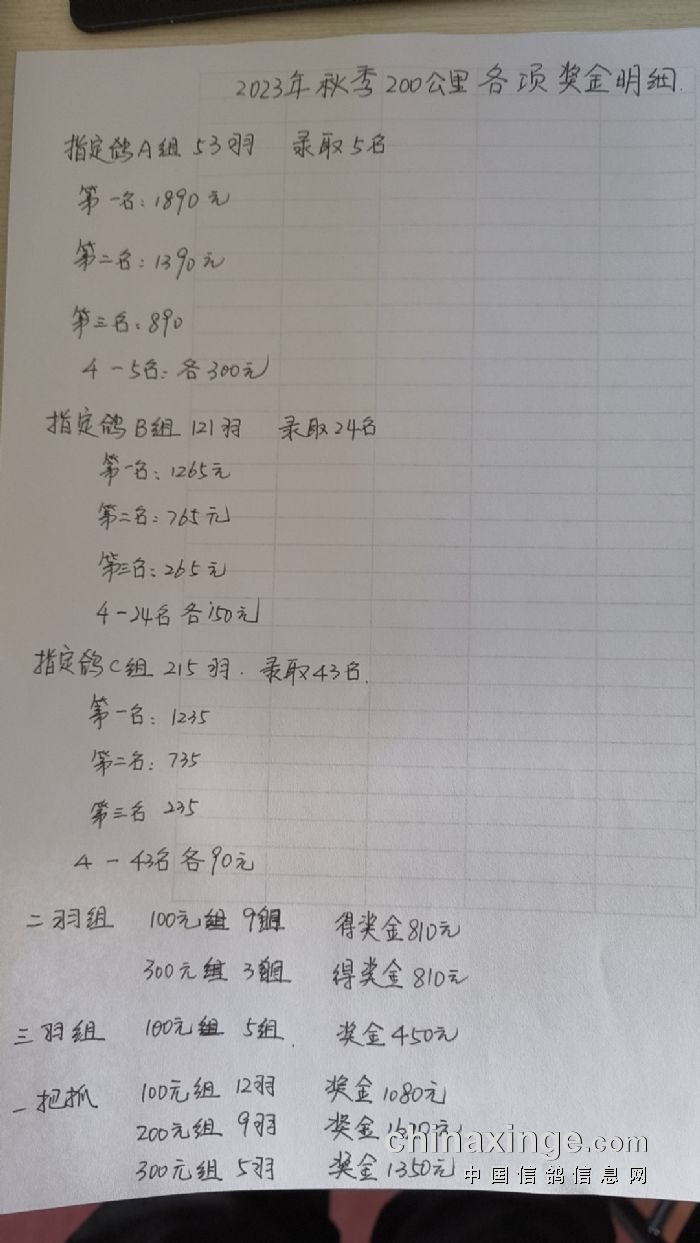 2023年秋季200公里各项奖金明细.
指定鸽A组 53羽 录取5名
第一名：1890元
第二名：1390元
第三名：890
4-5名：各300元
指定鸽B组 121羽 录取24名
第一名：1265元
第二名：765元
第三名：265元
4-24名 各150元
指定鸽C组 215羽. 录取43名.
第一名：1235
第二名：735
第三名 235
4-43名各90元
二羽组 100元组 9组 得奖金810元
300元组 3组 得奖金810元
三羽组 100元组 5组. 奖金450元
一把抓 100元组 12羽 奖金1080元
200元组 9羽 奖金
300元组 5羽 奖金1350元
chinaxinge.com
中国信鸽信息网